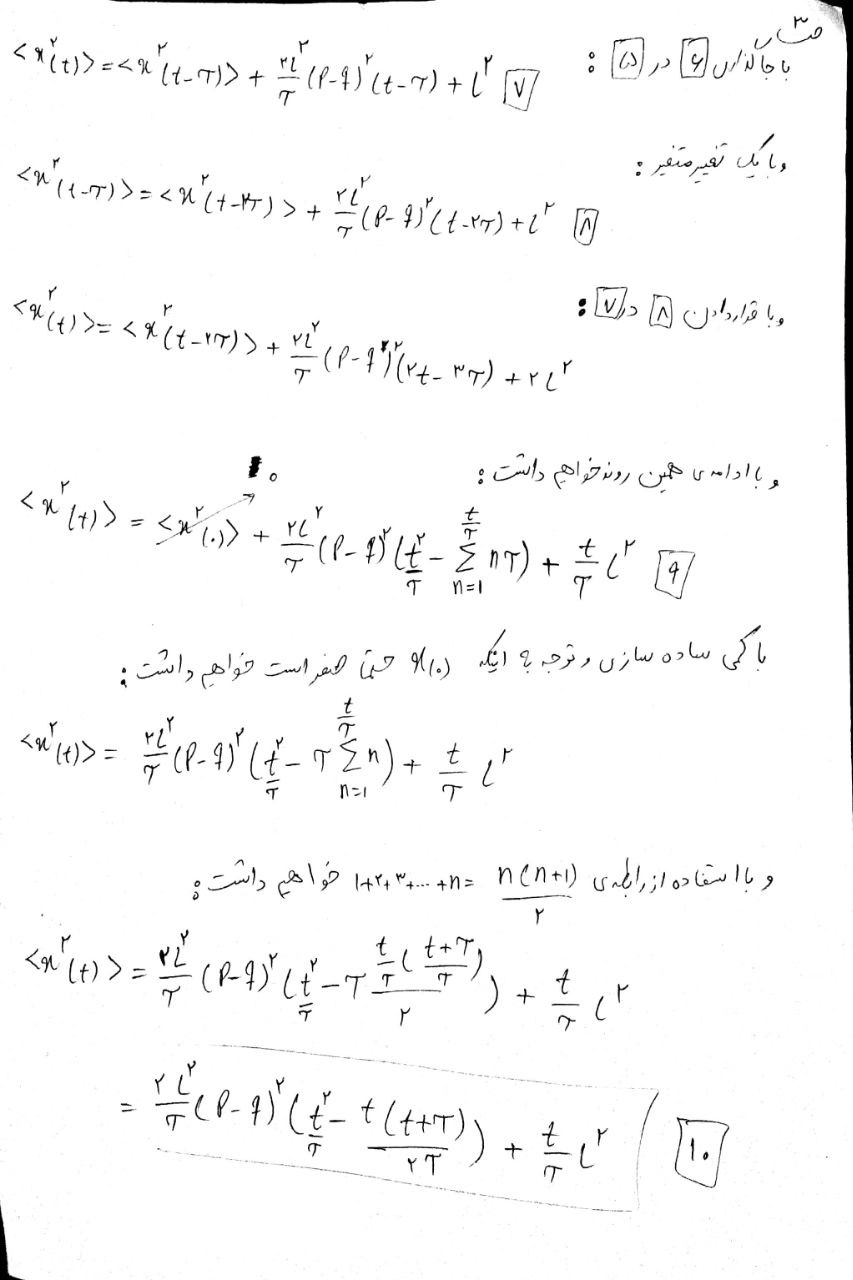 با جاگذاری [۶] در [۵] :
<x²(t)> = <x²(t-τ)> + ۲l²/τ (p-q)²(t-τ) + l² [۷]
و با یک تغییر متغیر :
<x²(t-τ)> = <x²(t-۲τ)> + ۲l²/τ (p-q)²(t-۲τ) + l² [۸]
و با قراردادن [۸] در [۷] :
<x²(t)> = <x²(t-۲τ)> + ۲l²/τ (p-q)²(۲t-۳τ) + ۲l²
و با ادامه‌ی همین روند خواهیم داشت :
<x²(t)> = <x²(۰)> ↗۰ + ۲l²/τ (p-q)²(t²/τ - Σ_{n=1}^{t/τ} nτ) + t/τ l² [۹]
با کمی ساده سازی و توجه به اینکه x(۰) حتماً صفر است خواهیم داشت :
<x²(t)> = ۲l²/τ (p-q)²(t²/τ - τ Σ_{n=1}^{t/τ} n) + t/τ l²
و با استفاده از رابطه‌ی 1+۲+۳+...+n = n(n+1)/۲ خواهیم داشت :
<x²(t)> = ۲l²/τ (p-q)²(t²/τ - τ (t/τ ((t+τ)/τ))/۲) + t/τ l²
= ۲l²/τ (p-q)²(t²/τ - t(t+τ)/۲τ) + t/τ l² [۱۰]